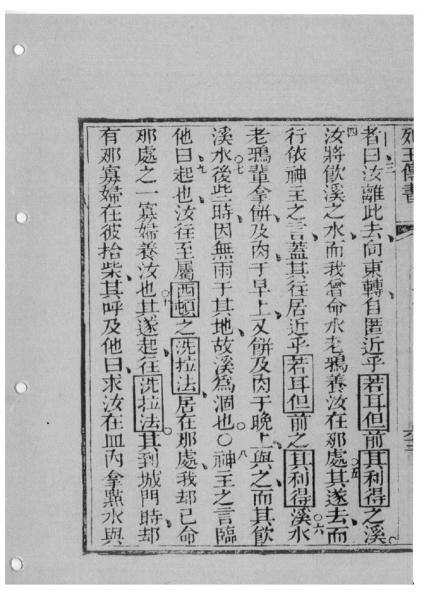 列王傳書
三
者曰汝離此去向東轉自匿近乎若耳但前其利得之溪
四
汝將飲溪之水而我曾命水老鴉養汝在那處五其遂去而
行依神王之言蓋其往居近乎若耳但前之其利得溪水六
老鴉輩拿餅及肉于早上又餅及肉于晚上與之而其飲
溪水七後些時因無雨于其地故溪為涸也〇八神王之言臨
他曰九起也汝往至屬西頓之洗拉法居在那處我却已命
那處之一寡婦養汝也十其遂起往洗拉法其到城門時却
有那寡婦在彼拾柴其呼及他曰求汝在皿內拿㸃水與